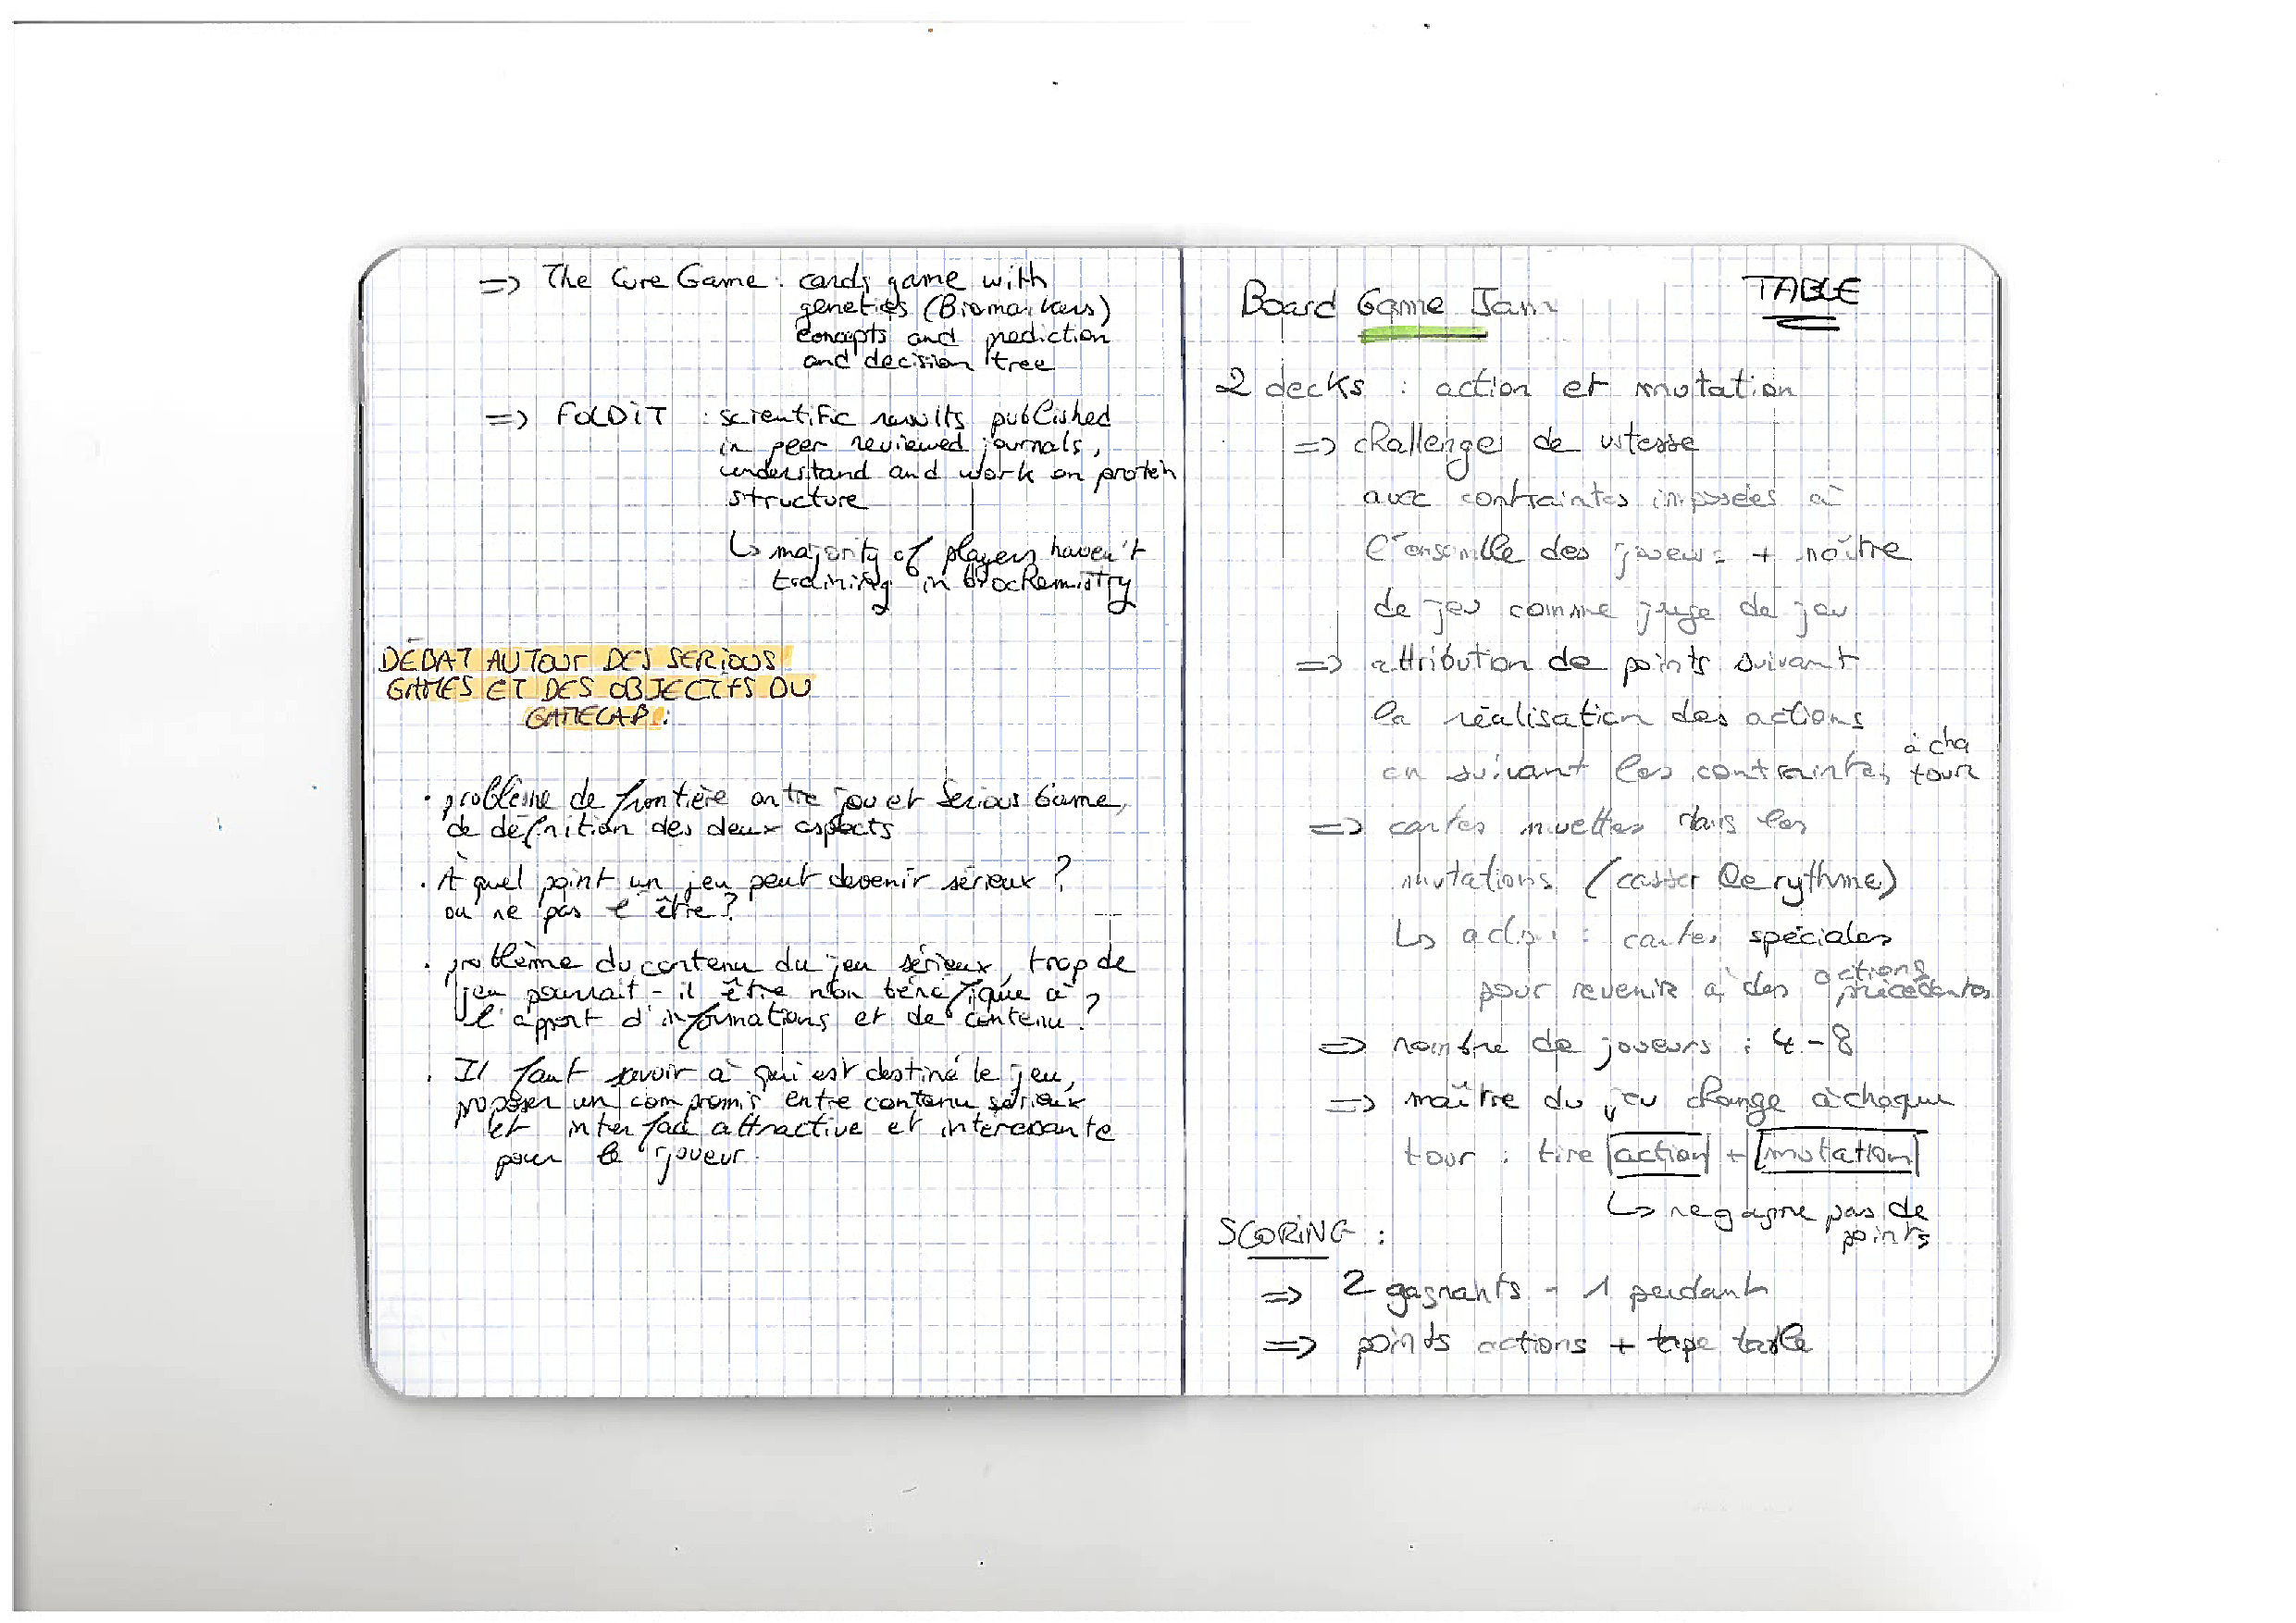 => The Cure Game : cards game with
genetics (Biomarkers)
concepts and prediction
and decision tree
=> FOLDiT : scientific results published
in peer reviewed journals,
understand and work on protein
structure
↳ majority of players haven't
training in biochemistry
DÉBAT AUTOUR DES SERIOUS
GAMES ET DES OBJECTIFS DU
GAMELAB :
• problème de frontière entre jeu et Serious Game,
de définition des deux aspects
• À quel point un jeu peut devenir sérieux ?
ou ne pas l'être ?
• problème du contenu du jeu sérieux, trop de
jeu pourrait-il être non bénéfique à
l'apport d'informations et de contenu ?
• Il faut savoir à qui est destiné le jeu,
proposer un compromis entre contenu sérieux
et interface attractive et interessante
pour le joueur.
Board Game Jam
TABLE
2 decks : action et mutation
=> challenges de vitesse
avec contraintes imposées à
l'ensemble des joueurs + maître
de jeu comme juge de jeu
=> attribution de points suivant
la réalisation des actions
en suivant les contraintes à cha
tour
=> cartes muettes dans les
mutations (casser le rythme)
↳ action : cartes spéciales
pour revenir à des actions
précédentes
=> nombre de joueurs : 4-8
=> maître du jeu change à chaque
tour : tire action + mutation
↳ ne gagne pas de
points
SCORING :
=> 2 gagnants - 1 perdant
=> points actions + tape table